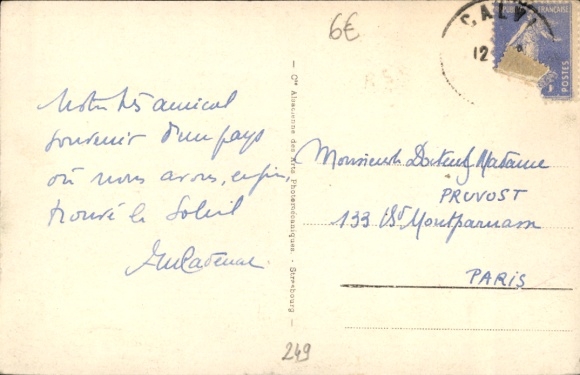 6€
CALVI
12
PUBLIQUE FRANÇAISE
POSTES
Notre très amical
souvenir d'un pays
où nous avons, enfin,
trouvé le Soleil
— Cie Alsacienne des Arts Photomécaniques - Strasbourg —
Monsieur le Docteur & Madame
PRUVOST
133 Bd Montparnasse
PARIS
249